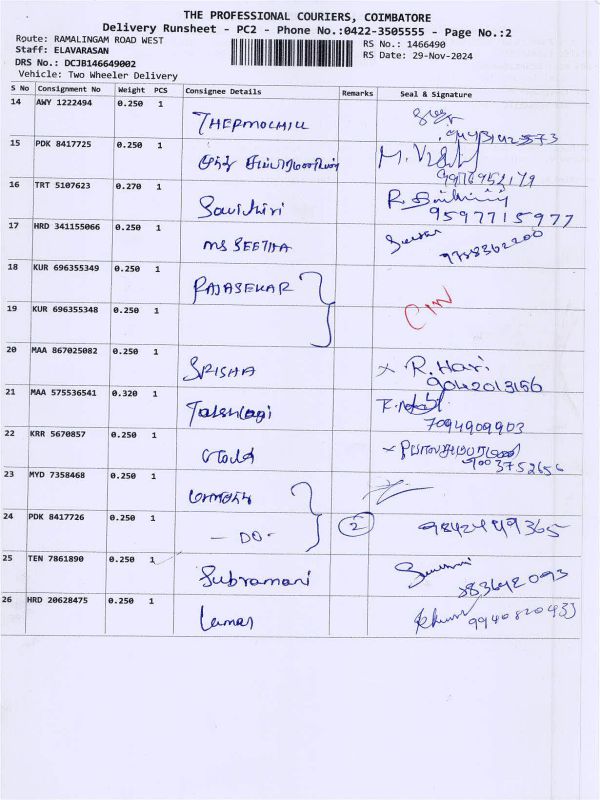 THE PROFESSIONAL COURIERS, COIMBATORE
Delivery Runsheet - PC2 - Phone No.:0422-3505555 - Page No.:2
Route: RAMALINGAM ROAD WEST
RS No.: 1466490
Staff: ELAVARASAN
RS Date: 29-Nov-2024
DRS No.: DCJB146649002
Vehicle: Two Wheeler Delivery
S No Consignment No Weight PCS Consignee Details Remarks Seal & Signature
14 AWY 1222494 0.250 1
15 PDK 8417725 0.250 1
M.
16 TRT 5107623 0.270 1 Savithiri R.
9597715977
17 HRD 341155066 0.250 1 MS SEETHA
9788362200
18 KUR 696355349 0.250 1 RAJASEKAR
19 KUR 696355348 0.250 1
20 MAA 867025082 0.250 1 SRISHA × R. Hari
9042013156
21 MAA 575536541 0.320 1
7094909903
22 KRR 5670857 0.250 1
9003752656
23 MYD 7358468 0.250 1
24 PDK 8417726 0.250 1 - DO - 2 9842449365
25 TEN 7861890 0.250 1 Subramani
26 HRD 20628475 0.250 1
9940820433